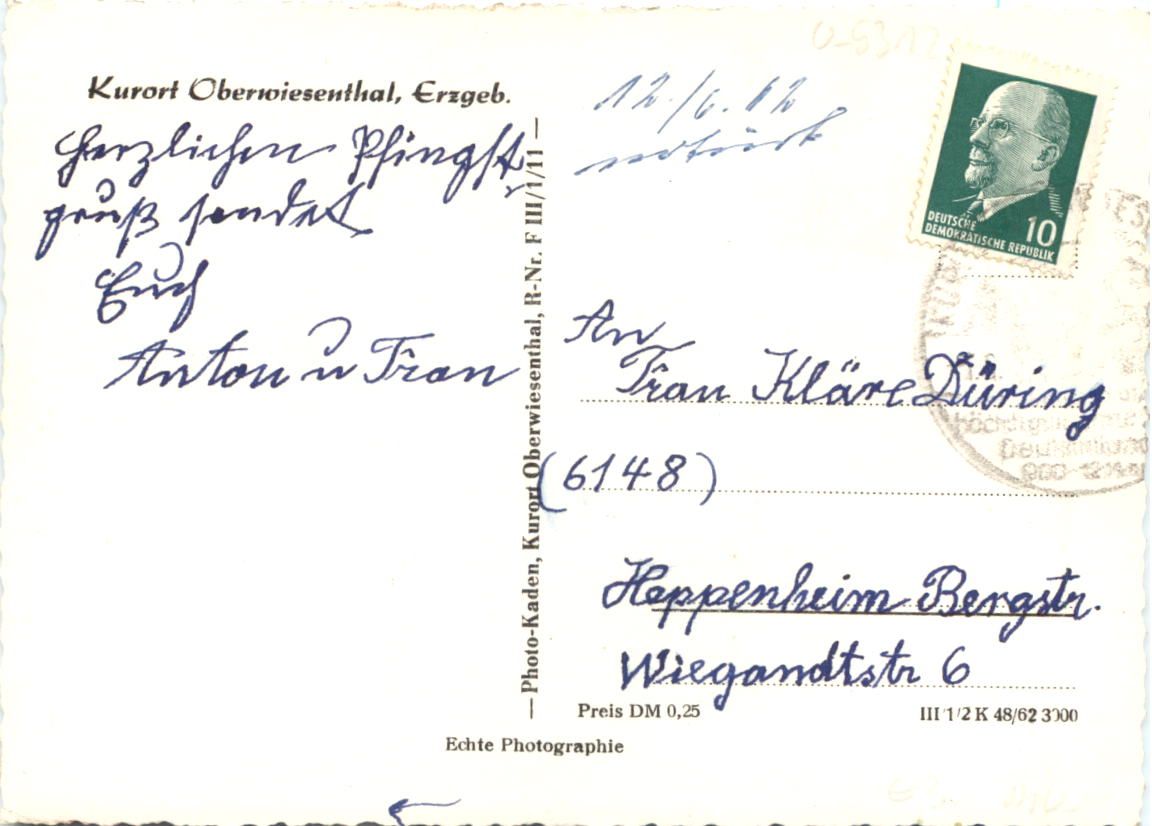 Kurort Oberwiesenthal, Erzgeb.
Herzlichen Pfingst
gruß sendet
Euch
Anton u Frau
Photo-Kaden, Kurort Oberwiesenthal, R-Nr. F III/1/11
12/6. 62
DEUTSCHE
DEMOKRATISCHE REPUBLIK
10
An
Frau Kläre Düring
(6148)
Heppenheim Bergstr.
Wiegandtstr 6
Preis DM 0,25
III 1/2 K 48/62 3000
Echte Photographie